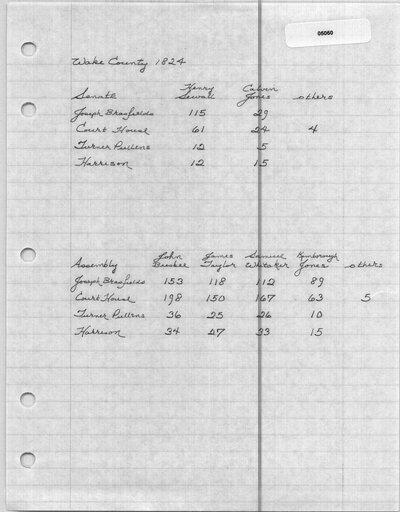 05060
Wake County 1824
Henry Calvin
Senate Sewall Jones others
Joseph Brasfields 115 29
Court House 61 24 4
Turner Pullens 12 5
Harrison 12 15
John James Samuel Kimborough
Assembly Taylor Whitaker Jones others
Joseph Brasfields 153 118 112 89
Court House 198 150 167 63 5
Turner Pullens 36 25 26 10
Harrison 34 27 33 15